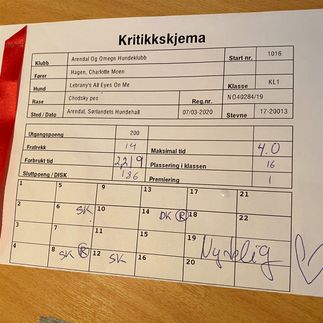 Kritikkskjema
Klubb Arendal Og Omegn Hundeklubb Start nr. 1016
Fører Hagen, Charlotte Moen Klasse KL1
Hund Lebrany's All Eyes On Me
Rase Chodsky pes Reg.nr. NO40284/19
Sted / Dato Arendal, Sørlandets Hundehall 07/03-2020 Stevne 17-20013
Utgangspoeng 200
Fratrekk 14 Maksimal tid 4.0
Forbrukt tid 2,219 Plassering i klassen 16
Sluttpoeng / DISK 186 Premiering 1
1 5 9 13 17 21
2 6 SK 10 14 DK R 18 22
3 7 11 15 19
4 8 SK R 12 SK 16 20 Nydelig